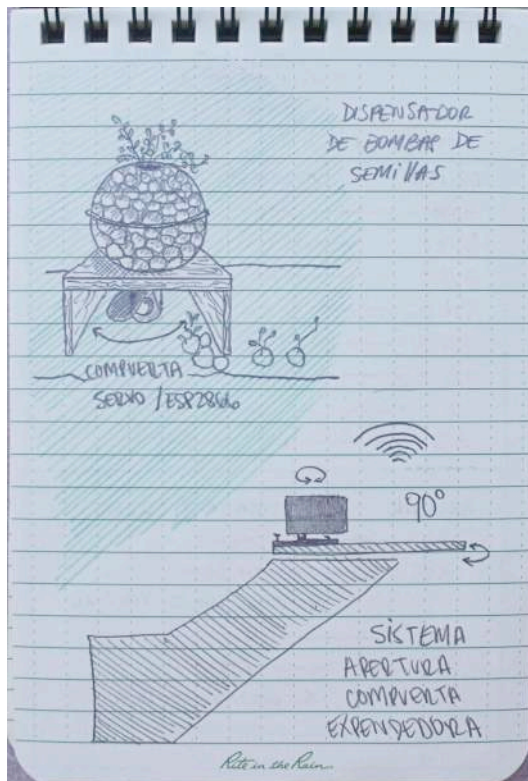 DISPENSADOR
DE BOMBAS DE
SEMILLAS
COMPUERTA
SERVO / ESP8266
90°
SISTEMA
APERTURA
COMPUERTA
EXPENDEDORA
Rite in the Rain